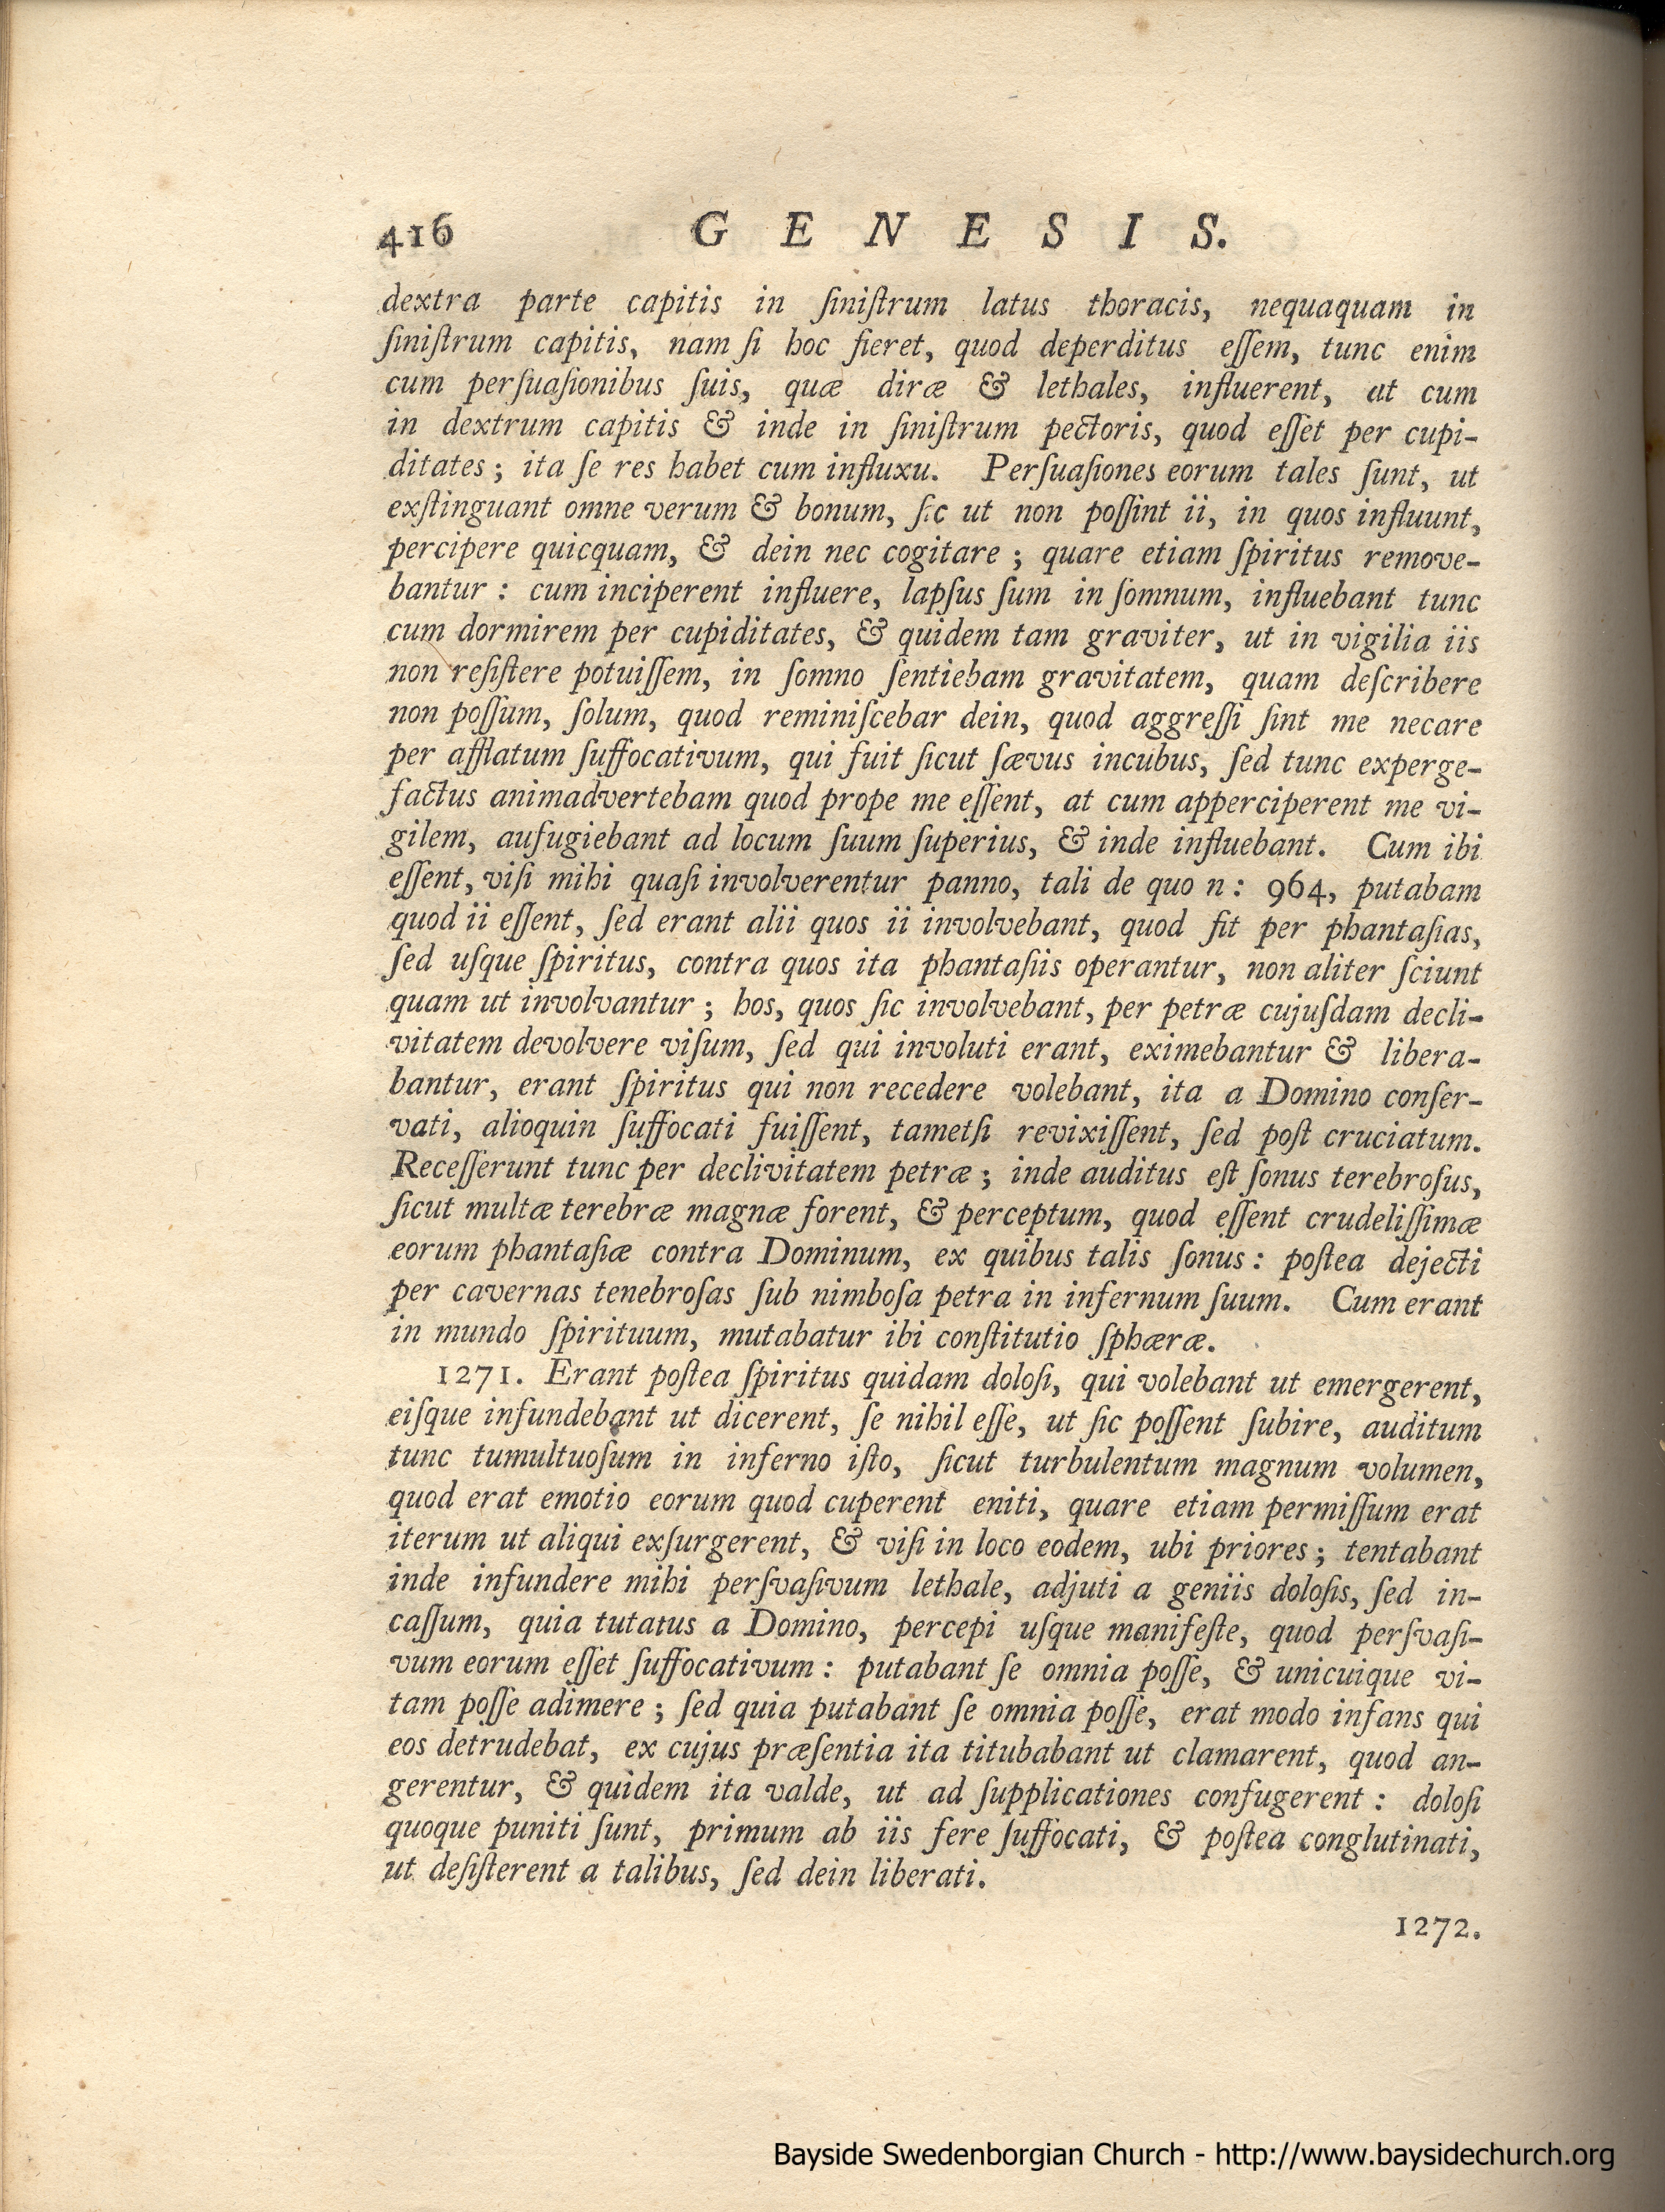 416 G E N E S I S.
dextra parte capitis in ſiniſtrum latus thoracis, nequaquam in
ſiniſtrum capitis, nam ſi hoc fieret, quod deperditus eſſem, tunc enim
cum perſuaſionibus ſuis, quæ diræ & lethales, influerent, at cum
in dextrum capitis & inde in ſiniſtrum pectoris, quod eſſet per cupi-
ditates; ita ſe res habet cum influxu. Perſuaſiones eorum tales ſunt, ut
exſtinguant omne verum & bonum, ſic ut non poſſint ii, in quos influunt,
percipere quicquam, & dein nec cogitare; quare etiam ſpiritus remove-
bantur: cum inciperent influere, lapſus ſum in ſomnum, influebant tunc
cum dormirem per cupiditates, & quidem tam graviter, ut in vigilia iis
non reſiſtere potuiſſem, in ſomno ſentiebam gravitatem, quam deſcribere
non poſſum, ſolum, quod reminiſcebar dein, quod aggreſſi ſint me necare
per afflatum ſuffocativum, qui fuit ſicut ſævus incubus, ſed tunc experge-
factus animadvertebam quod prope me eſſent, at cum apperciperent me vi-
gilem, aufugiebant ad locum ſuum ſuperius, & inde influebant. Cum ibi
eſſent, viſi mihi quaſi involverentur panno, tali de quo n: 964, putabam
quod ii eſſent, ſed erant alii quos ii involvebant, quod fit per phantaſias,
ſed uſque ſpiritus, contra quos ita phantaſiis operantur, non aliter ſciunt
quam ut involvantur; hos, quos ſic involvebant, per petræ cujuſdam decli-
vitatem devolvere viſum, ſed qui involuti erant, eximebantur & libera-
bantur, erant ſpiritus qui non recedere volebant, ita a Domino conſer-
vati, alioquin ſuffocati fuiſſent, tametſi revixiſſent, ſed poſt cruciatum.
Receſſerunt tunc per declivitatem petræ; inde auditus eſt ſonus terebroſus,
ſicut multæ terebræ magnæ forent, & perceptum, quod eſſent crudeliſſimæ
eorum phantaſiæ contra Dominum, ex quibus talis ſonus: poſtea dejecti
per cavernas tenebroſas ſub nimboſa petra in infernum ſuum. Cum erant
in mundo ſpirituum, mutabatur ibi conſtitutio ſphæræ.
1271. Erant poſtea ſpiritus quidam doloſi, qui volebant ut emergerent,
eiſque infundebant ut dicerent, ſe nihil eſſe, ut ſic poſſent ſubire, auditum
tunc tumultuoſum in inferno iſto, ſicut turbulentum magnum volumen,
quod erat emotio eorum quod cuperent eniti, quare etiam permiſſum erat
iterum ut aliqui exſurgerent, & viſi in loco eodem, ubi priores; tentabant
inde infundere mihi perſvaſivum lethale, adjuti a geniis doloſis, ſed in-
caſſum, quia tutatus a Domino, percepi uſque manifeſte, quod perſvaſi-
vum eorum eſſet ſuffocativum: putabant ſe omnia poſſe, & unicuique vi-
tam poſſe adimere; ſed quia putabant ſe omnia poſſe, erat modo infans qui
eos detrudebat, ex cujus præſentia ita titubabant ut clamarent, quod an-
gerentur, & quidem ita valde, ut ad ſupplicationes confugerent: doloſi
quoque puniti ſunt, primum ab iis fere ſuffocati, & poſtea conglutinati,
ut deſiſterent a talibus, ſed dein liberati.
1272.
Bayside Swedenborgian Church - http://www.baysidechurch.org